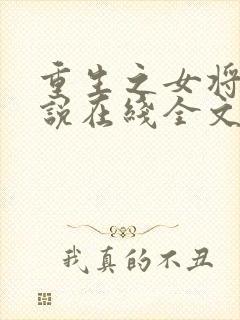 重生之女将
说在线全文
我真的不丑